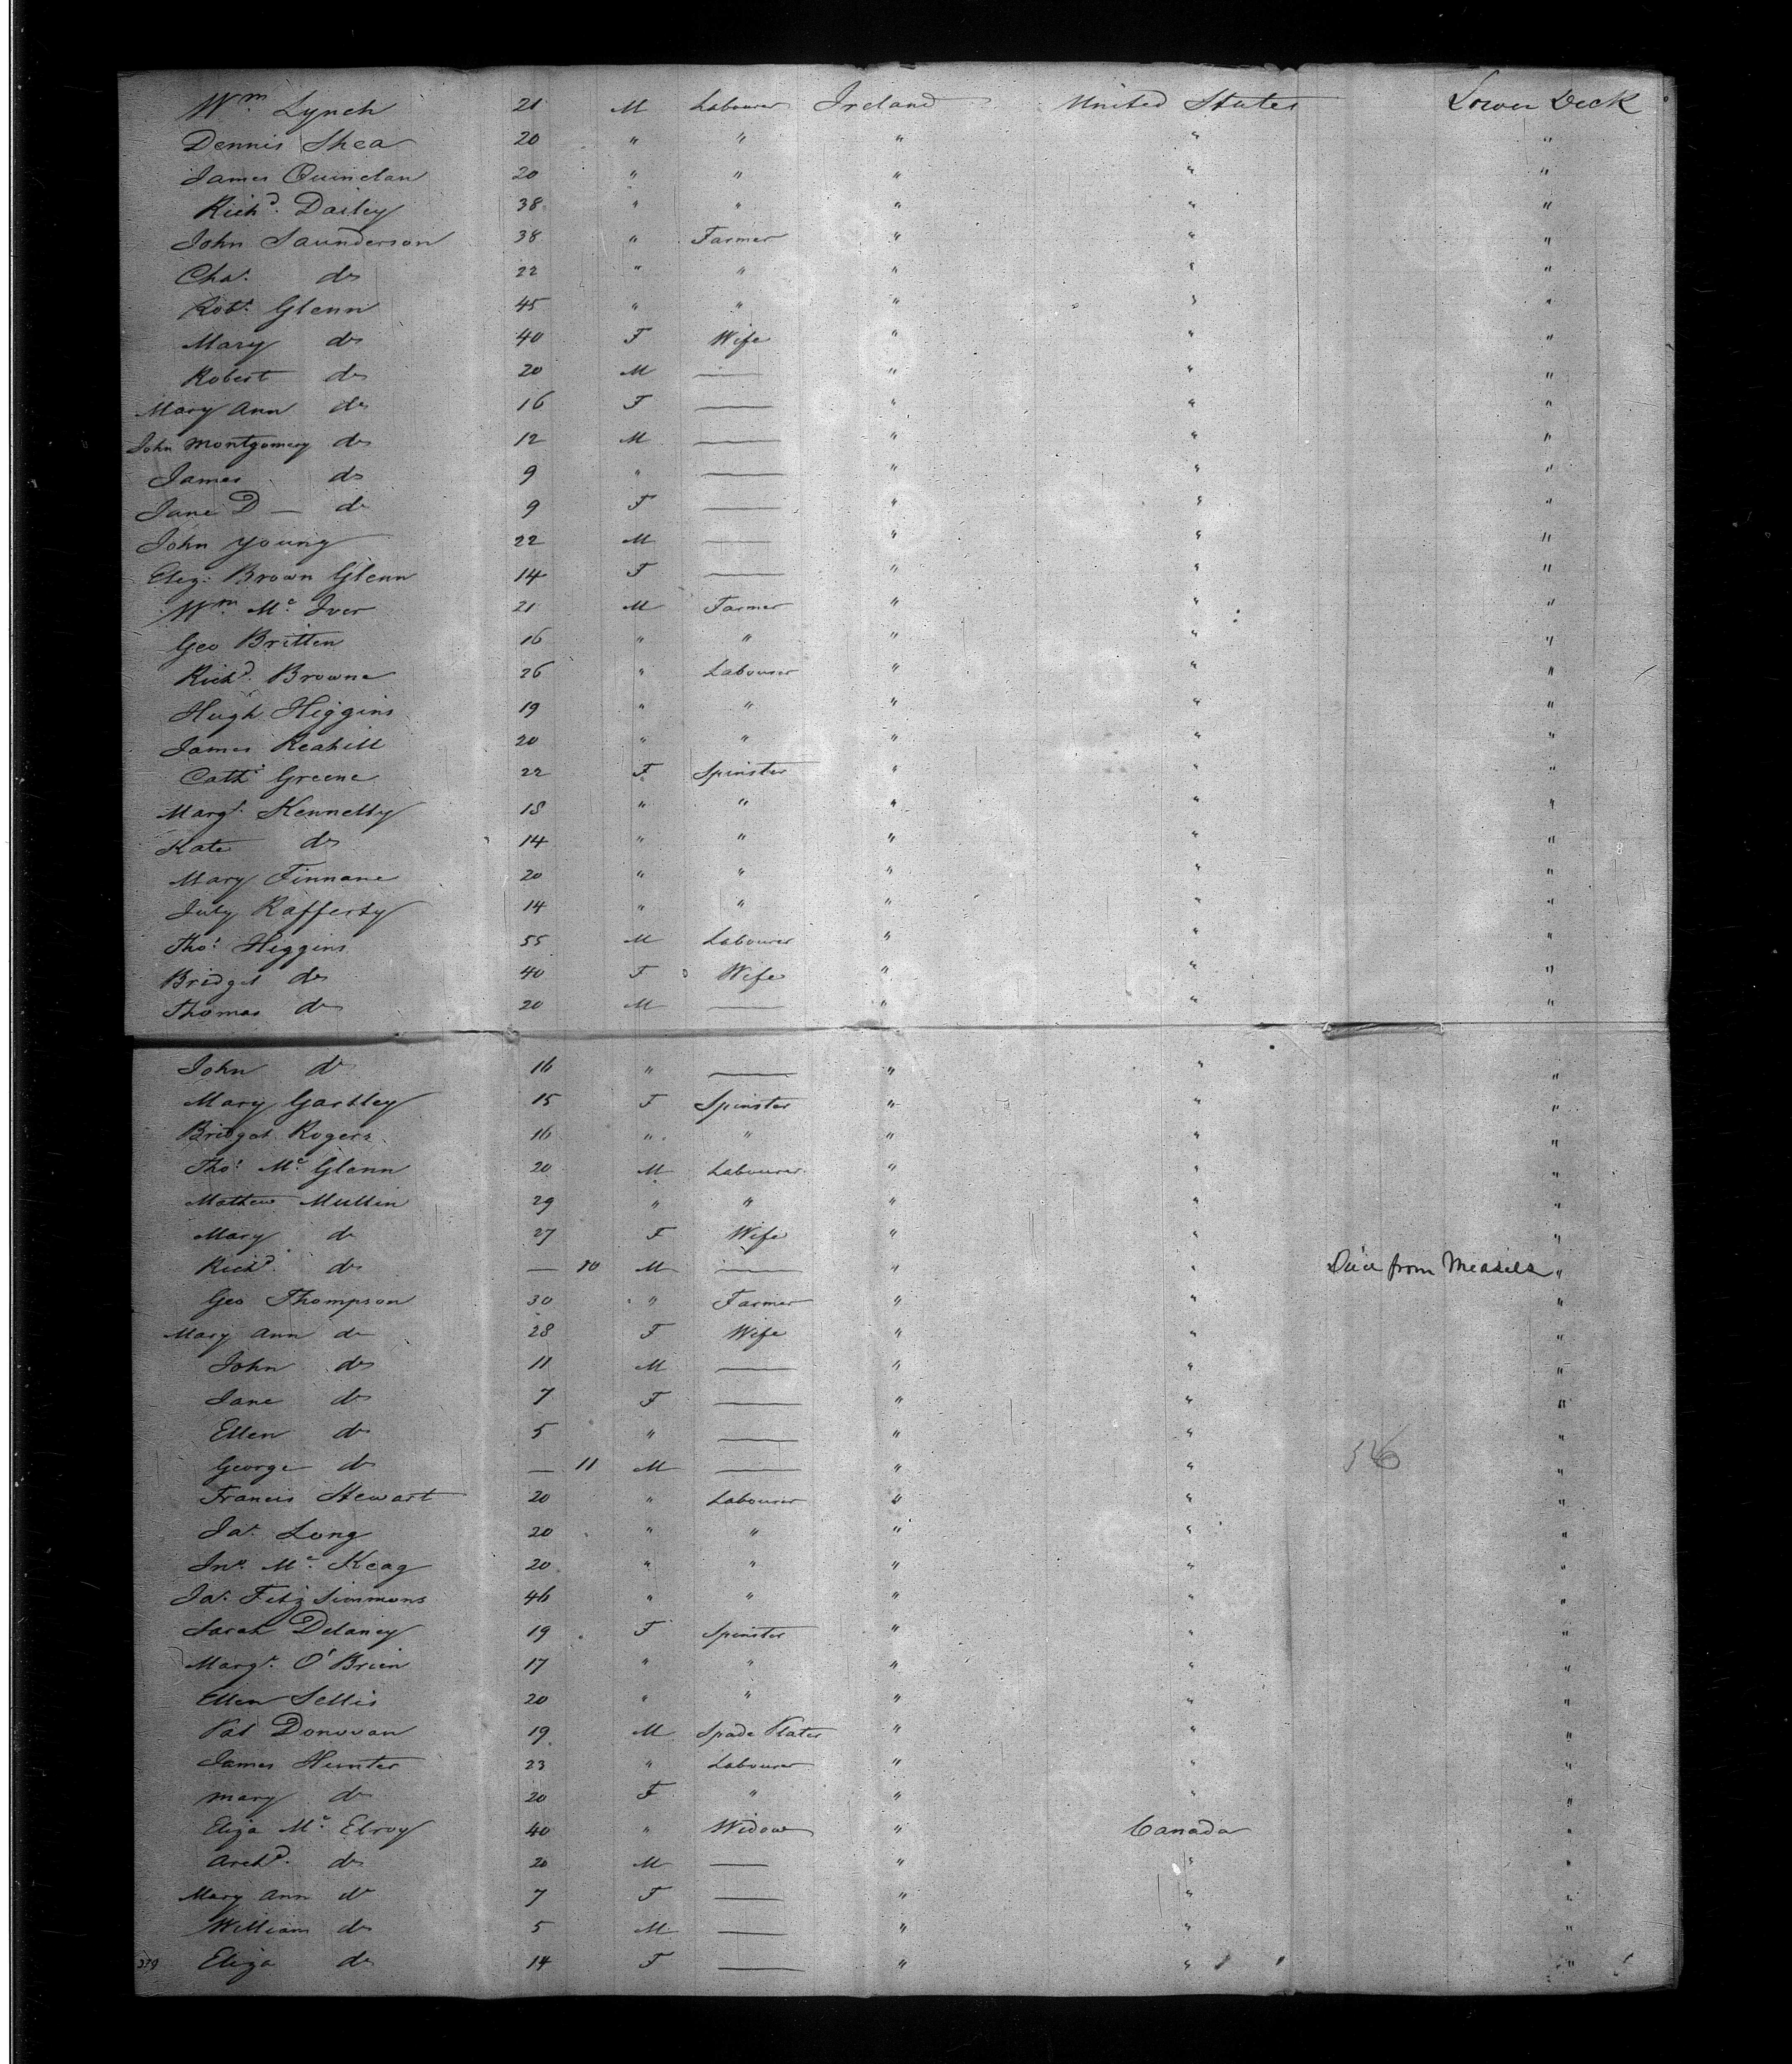 Wm Lynch 21 M Labourer Ireland United States Lower Deck
Dennis Shea 20 " " " " "
James Quinlan 20 " " " " "
Richd. Dailey 38 " " " " "
John Saunderson 38 " Farmer " " "
Chas. do 22 " " " " "
Robt. Glenn 45 " " " " "
Mary do 40 F Wife " " "
Robert do 20 M — " " "
Mary Ann do 16 F — " " "
John Montgomery do 12 M — " " "
James do 9 " — " " "
Jane D — do 9 F — " " "
John Young 22 M — " " "
Eliz: Brown Glenn 14 F — " " "
Wm. Mc Iver 21 M Farmer " " "
Geo Britten 16 " " " " "
Richd. Browne 26 " Labourer " " "
Hugh Higgins 19 " " " " "
James Keahill 20 " " " " "
Cathe Greene 22 F Spinster " " "
Margt. Kennelly 18 " " " " "
Kate do 14 " " " " "
Mary Finnane 20 " " " " "
July Rafferty 14 " " " " "
Thos. Higgins 55 M Labourer " " "
Bridget do 40 F Wife " " "
Thomas do 20 M — " " "
John do 16 " — " " "
Mary Gartley 15 F Spinster " " "
Bridget Rogers 16 " " " " "
Thos. Mc Glenn 20 M Labourer " " "
Mathew Mullin 29 " " " " "
Mary do 27 F Wife " " "
Richd. do — 10 M — " " Died from Measels "
Geo Thompson 30 " Farmer " " "
Mary Ann do 28 F Wife " " "
John do 11 M — " " "
Jane do 7 F — " " "
Ellen do 5 " — " " "
George do — 11 M — " " "
Francis Stewart 20 " Labourer " " "
Jas. Long 20 " " " " "
Jno. Mc Keag 20 " " " " "
Jas. Fitz Simmons 46 " " " " "
Sarah Delaney 19 F Spinster " " "
Margt. O'Brien 17 " " " " "
Ellen Sellis 20 " " " " "
Pat Donovan 19 M Spade Plater " " "
James Hunter 23 " Labourer " " "
Mary do 20 F " " " "
Eliza Mc Elroy 40 " Widow " Canada "
Archd. do 20 M — " " "
Mary Ann do 7 F — " " "
William do 5 M — " " "
Eliza do 14 F — " " "